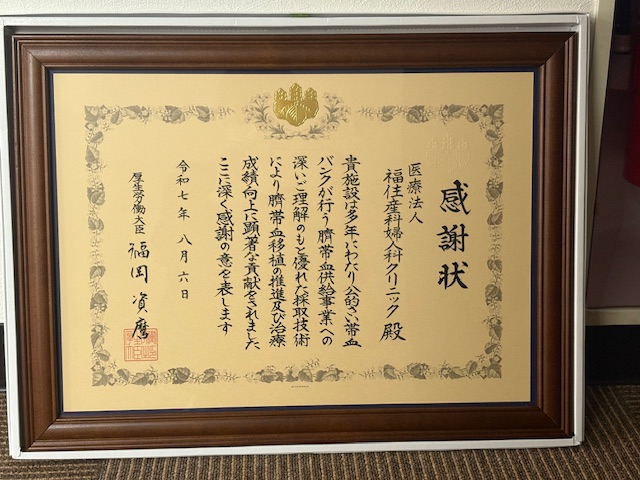 感謝状
医療法人
福住産科婦人科クリニック 殿
貴施設は多年にわたり公的さい帯血
バンクが行う臍帯血供給事業への
深いご理解のもと優れた採取技術
により臍帯血移植の推進及び治療
成績向上に顕著な貢献をされました
ここに深く感謝の意を表します
令和七年 八月六日
厚生労働大臣 福岡資麿